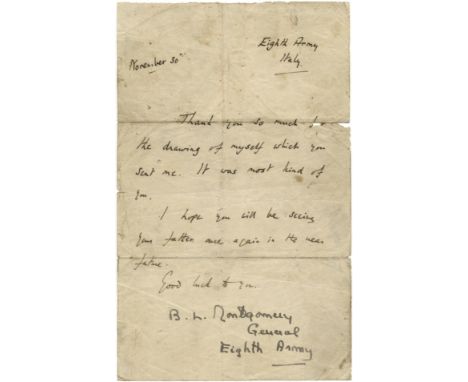 Eighth Army
Italy.
November 30
Thank you so much for
the drawing of myself which you
sent me. It was most kind of
you.
I hope you will be seeing
your father once again in the near
future.
Good luck to you.
B. L. Montgomery
General
Eighth Army